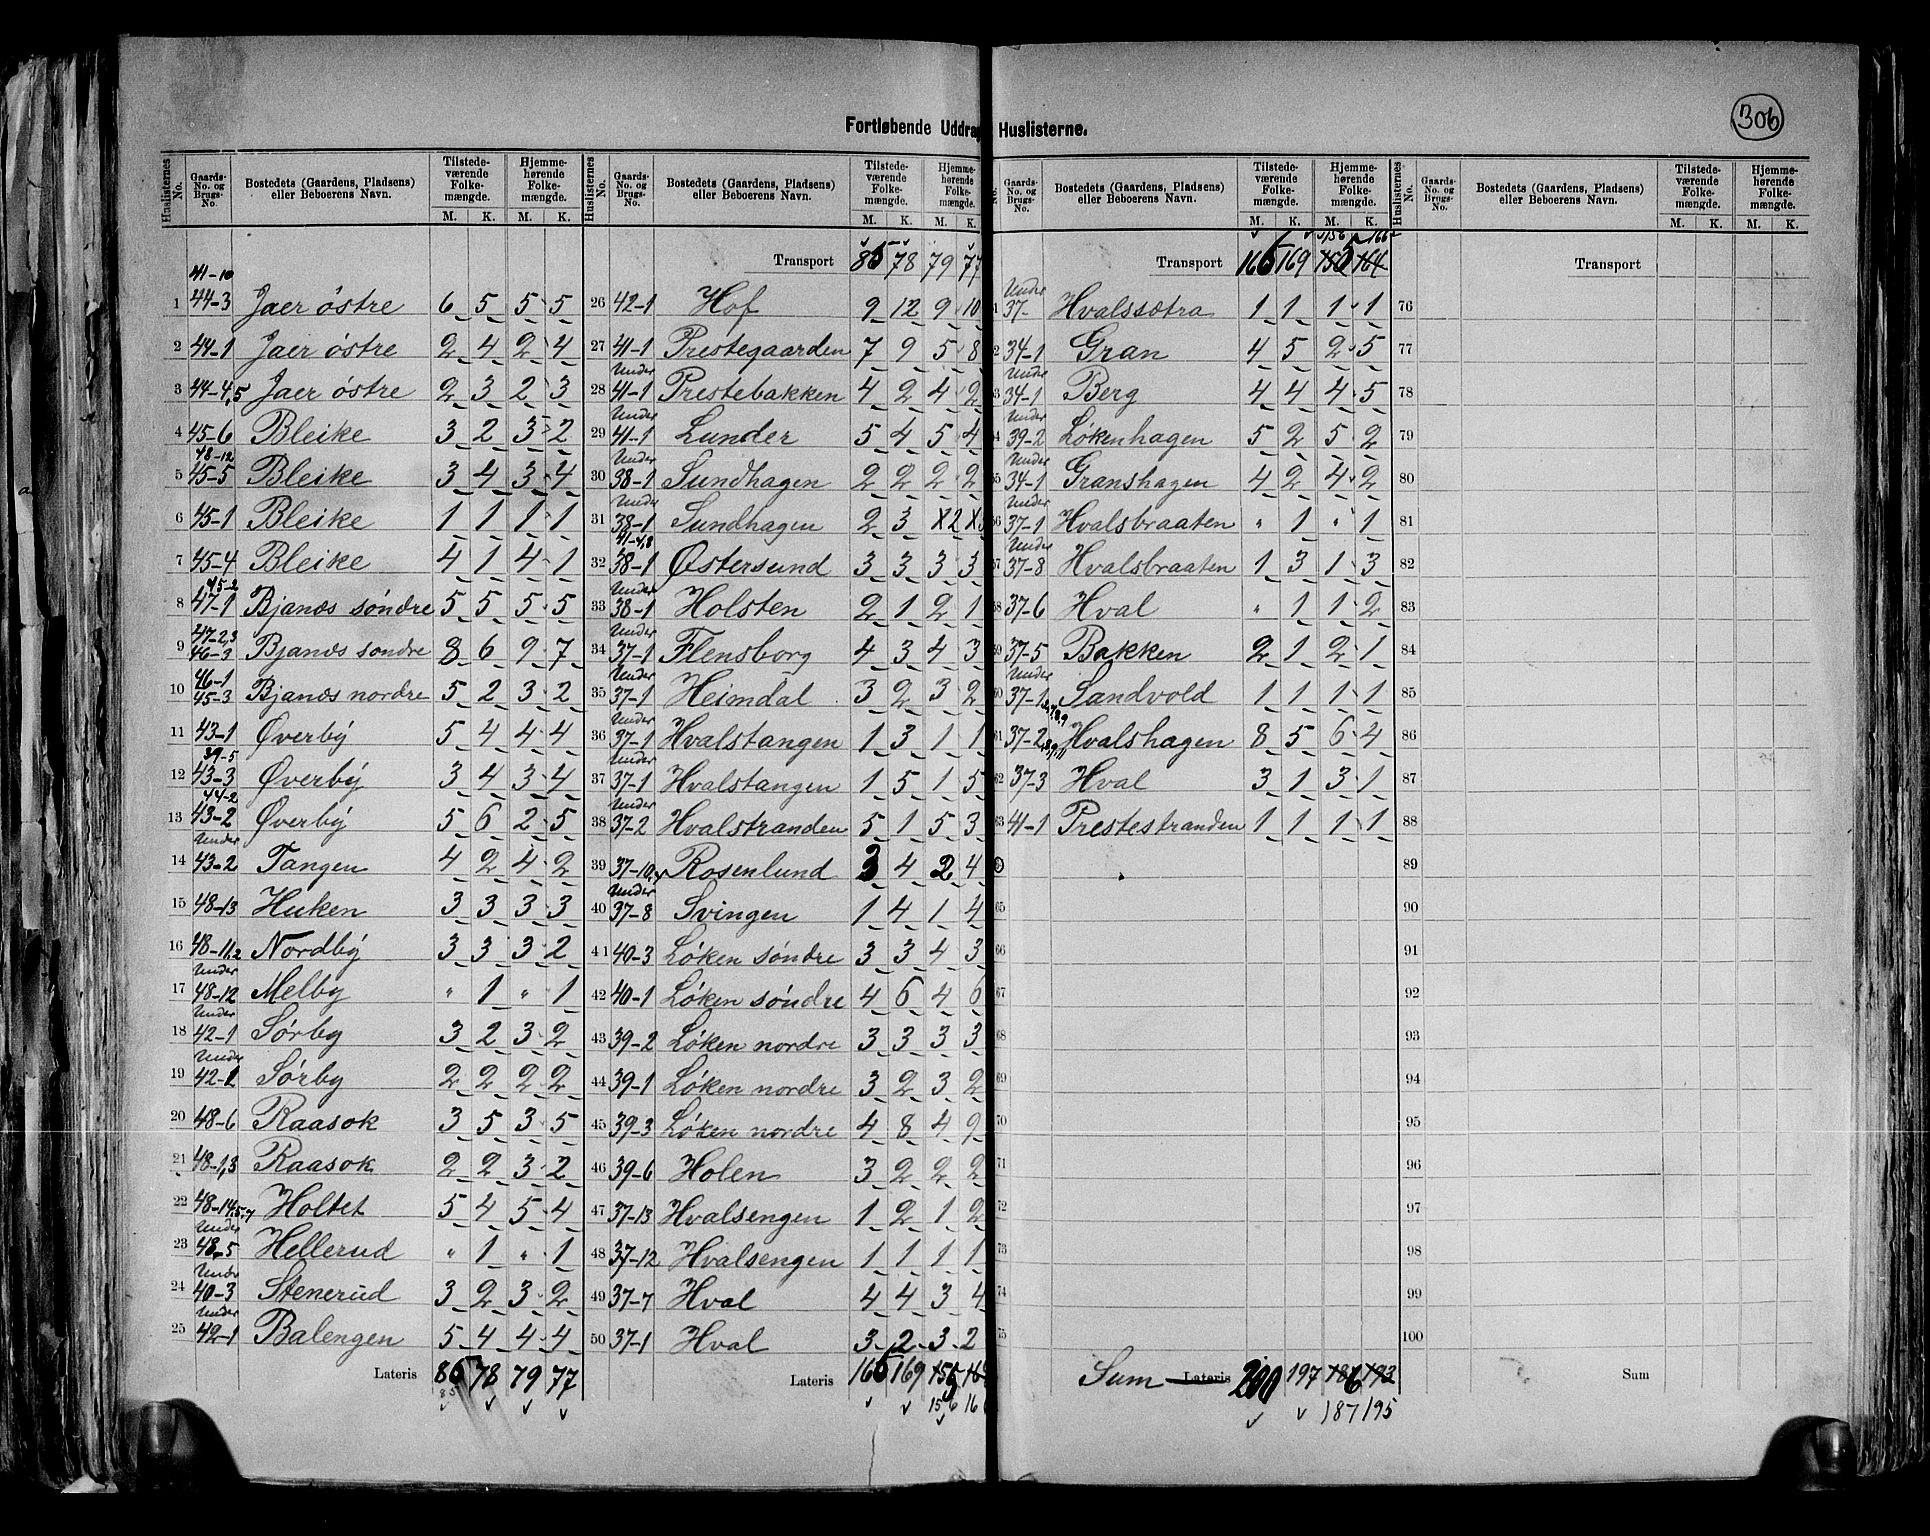 306
Fortløbende Uddra Huslisterne.
Huslisternes No. Gaards-No. og Brugs-No. Bostedets (Gaardens, Pladsens) eller Beboerens Navn. Tilstede-værende Folke-mængde. M. K. Hjemme-hørende Folke-mængde. M. K.
41-10
1 44-3 Jaer östre 6 5 5 5
2 44-1 Jaer östre 2 4 2 4
3 44-4,5 Jaer östre 2 3 2 3
4 45-6 Bleike 3 2 3 2
48-12
5 45-5 Bleike 3 4 3 4
6 45-1 Bleike 1 1 1 1
7 45-4 Bleike 4 1 4 1
45-2
8 47-1 Bjanæs söndre 5 5 5 5
47-2,3
9 46-3 Bjanæs søndre 8 6 9 7
46-1
10 45-3 Bjanæs nordre 5 2 3 2
11 43-1 Øverby 5 4 4 4
39-5
12 43-3 Øverby 3 4 3 4
44-2
13 43-2 Øverby 5 6 2 5
Under
14 43-2 Tangen 4 2 4 2
15 48-13 Huken 3 3 3 3
16 48-11,2 Nordby 3 3 3 2
Under
17 48-12 Melby " 1 " 1
Under
18 42-1 Sørby 3 2 3 2
Under
19 42-1 Sørby 2 2 2 2
20 48-6 Raasok 3 5 3 5
21 48-1,3 Raasok 2 2 3 2
22 48-14,5,7 Holtet 5 4 5 4
Under
23 48-5 Hellerud " 1 " 1
Under
24 40-3 Stenerud 3 2 3 2
Under
25 42-1 Balengen 5 4 4 4
Lateris 85 78 79 77
85
Huslisternes No. Gaards-No. og Brugs-No. Bostedets (Gaardens, Pladsens) eller Beboerens Navn. Tilstede-værende Folke-mængde. M. K. Hjemme-hørende Folke-mængde. M. K.
Transport 85 78 79 77
26 42-1 Hof 9 12 9 10
27 41-1 Prestegaarden 7 9 5 8
Under
28 41-1 Prestebakken 4 2 4 2
Under
29 41-1 Lunder 5 4 5 4
Under
30 38-1 Sundhagen 2 2 2 2
Under
31 38-1 Sundhagen 2 3 2
41-4,8
32 38-1 Østersund 3 3 3 3
Under
33 38-1 Holsten 2 1 2 1
Under
34 37-1 Flensborg 4 3 4 3
Under
35 37-1 Heimdal 3 2 3 2
Under
36 37-1 Hvalstangen 1 3 1 1
Under
37 37-1 Hvalstangen 1 5 1 5
Under
38 37-2 Hvalstranden 5 1 5 3
39 37-10,4 Rosenlund 3 4 2 4
Under
40 37-8 Svingen 1 4 1 4
41 40-3 Løken søndre 3 3 4 3
42 40-1 Løken söndre 4 6 4 6
43 39-2 Løken nordre 3 3 3 3
44 39-1 Løken nordre 3 2 3 2
45 39-3 Løken nordre 4 8 4 9
46 39-6 Holen 3 2 2 2
47 37-13 Hvalsengen 1 2 1 2
48 37-12 Hvalsengen 1 1 1 1
49 37-7 Hval 4 4 3 4
50 37-1 Hval 3 2 3 2
Lateris 165 169 155 16
156 16
No. Gaards-No. og Brugs-No. Bostedets (Gaardens, Pladsens) eller Beboerens Navn. Tilstede-værende Folke-mængde. M. K. Hjemme-hørende Folke-mængde. M. K.
156 166
Transport 165 169 155 164
Under
1 37- Hvalssætra 1 1 1 1
2 34-1 Gran 4 5 2 5
Under
3 34-1 Berg 4 4 4 5
Under
4 39-2 Løkenhagen 5 2 5 2
Under
55 34-1 Granshagen 4 2 4 2
Under
56 37-1 Hvalsbraaten " 1 " 1
Under
57 37-8 Hvalsbraaten 1 3 1 3
58 37-6 Hval " 1 1 2
59 37-5 Bakken 2 1 2 1
Under
60 37-1 Sandvold 1 1 1 1
61 37-2 Hvalshagen 8 5 6 4
62 37-3 Hval 3 1 3 1
63 41-1 Prestestranden 1 1 1 1
65
66
67
68
69
70
71
72
73
74
75
Sum Lateris 200 197 186 193
187 195
Huslisternes No. Gaards-No. og Brugs-No. Bostedets (Gaardens, Pladsens) eller Beboerens Navn. Tilstede-værende Folke-mængde. M. K. Hjemme-hørende Folke-mængde. M. K.
Transport
76
77
78
79
80
81
82
83
84
85
86
87
88
89
90
91
92
93
94
95
96
97
98
99
100
Sum